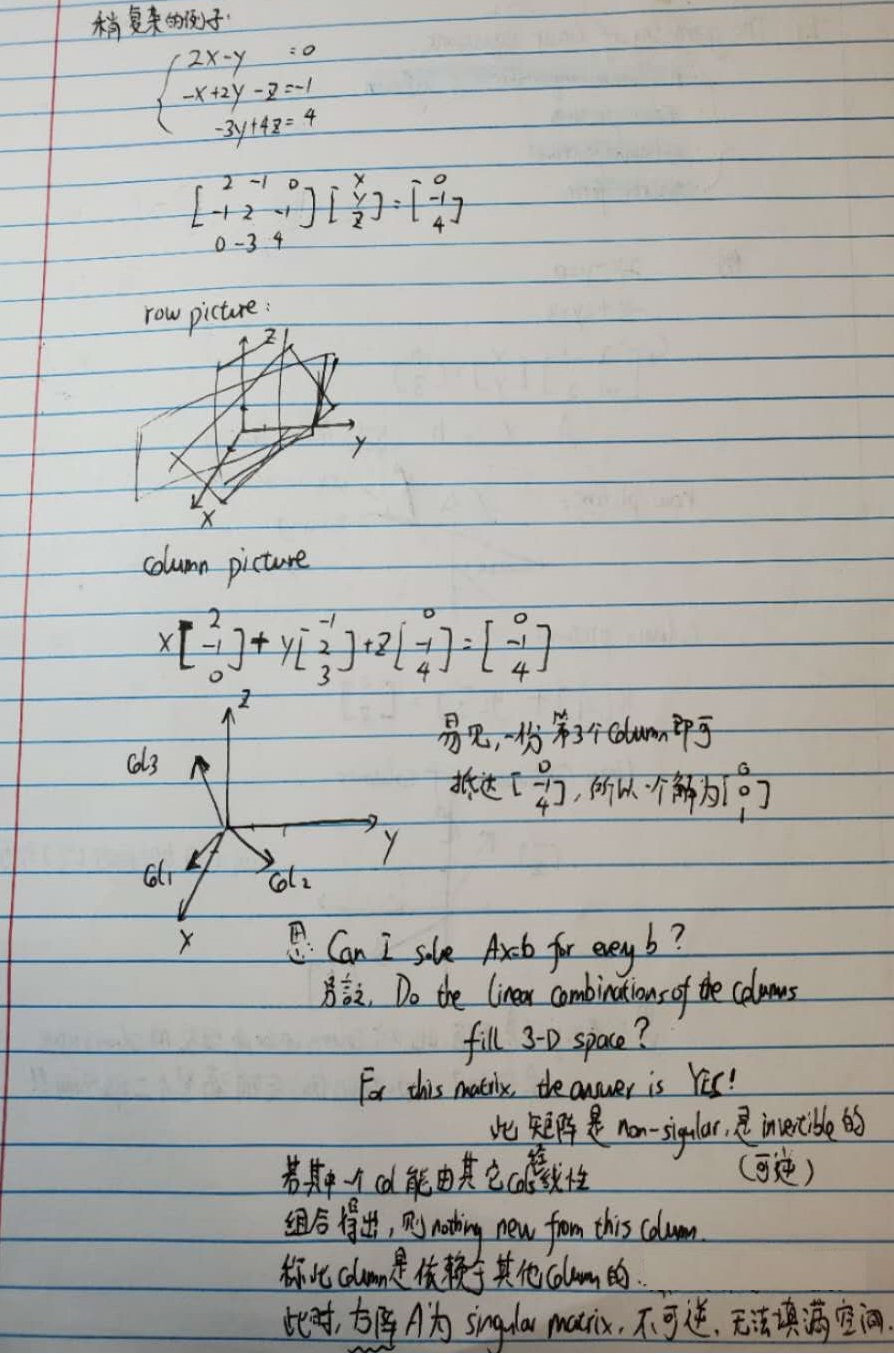 稍复杂的例子:
2x-y =0
-x+2y-z=-1
-3y+4z=4
[2 -1 0
-1 2 -1
0 -3 4] [x
y
z] = [0
-1
4]
row picture:
z
y
x
column picture
x[2
-1
0] + y[-1
2
3] + z[0
-1
4] = [0
-1
4]
z
col3
易见,一份第3个column即可
抵达[0
-1
4],所以一个解为[0
0
1]
y
col1
col2
x
思: Can I solve Ax=b for every b?
另言之, Do the linear combinations of the columns
fill 3-D space?
For this matrix, the answer is YES!
此矩阵是non-sigular,是invertible的
(可逆)
若其中一个col能由其它cols经线性
组合得出,则nothing new from this column.
称此column是依赖于其他column的.
此时,方阵A为singular matrix,不可逆,无法填满空间.